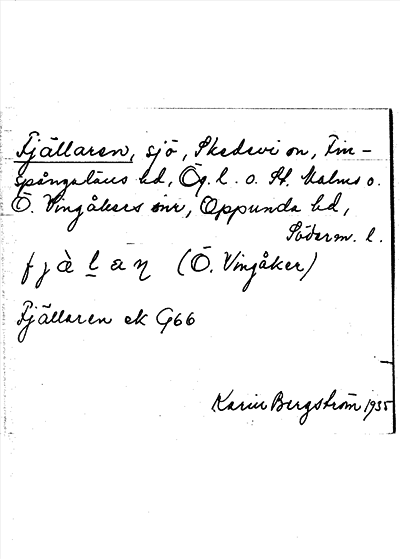 Fjällaren, sjö, Skedevi sn, Fin-
spångaläns hd, Ög. l. o. St. Malms o.
Ö. Vingåkers snr, Oppunda hd,
Söderm. l.
fjàḻaɳ (Ö. Vingåker)
Fjällaren ek G66
Karin Bergström 1935